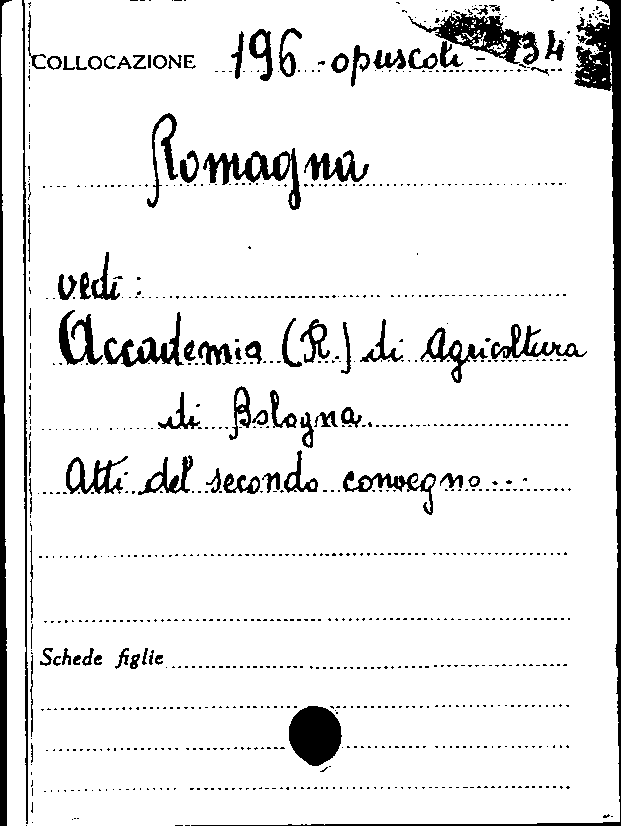 COLLOCAZIONE 196 - opuscoli - 734
Romagna
vedi:
Accademia (R.) di Agricoltura
di Bologna.
Atti del secondo convegno...
Schede figlie